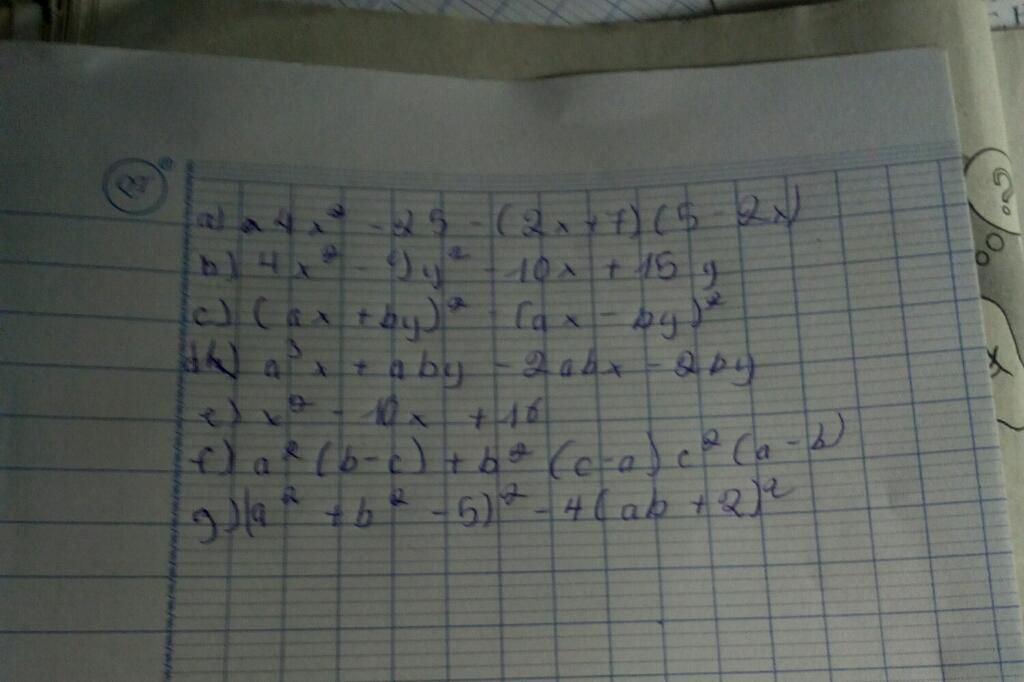 a) 4x² - 25 - (2x+7)(5-2x)
b) 4x² - 9y² - 10x + 15y
c) (ax + by)² - (ax - by)²
a³x + aby - 2abx - 2by
e) x² - 10x + 16
f) a²(b-c) + b²(c-a) c²(a-b)
g) (a² + b² - 5)² - 4(ab + 2)²